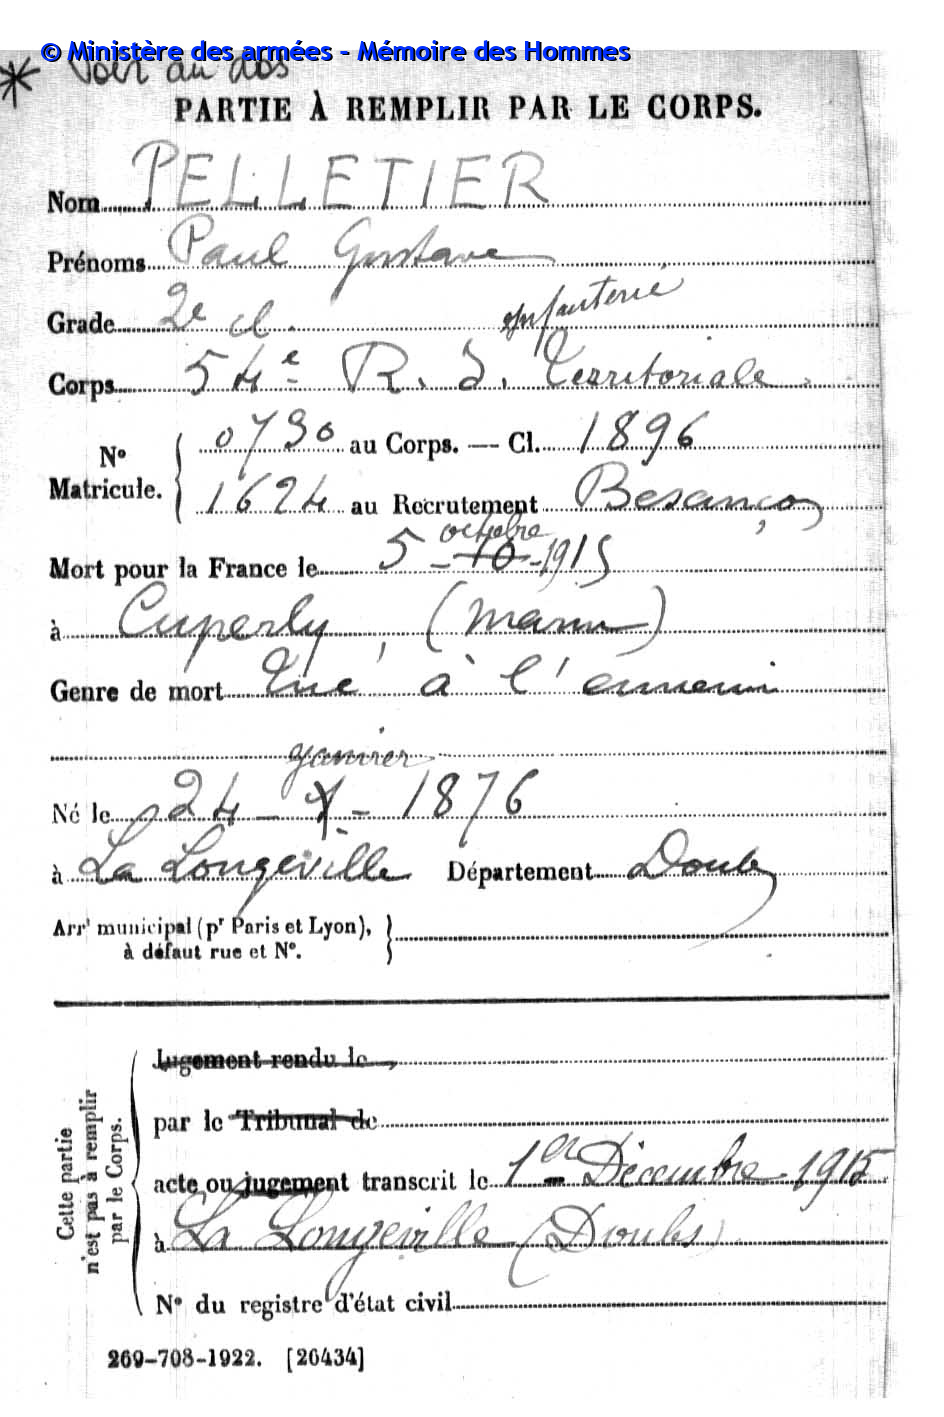 © Ministère des armées - Mémoire des Hommes
* Voir au dos
PARTIE À REMPLIR PAR LE CORPS.
Nom PELLETIER
Prénoms Paul Gustave
Grade 2e cl. infanterie
Corps 54e R. d. Territoriale
No Matricule. { 0730 au Corps. — Cl. 1896
1624 au Recrutement Besançon
octobre
Mort pour la France le 5 - 10 - 1915
à Cuperly, (Marne)
Genre de mort Tué à l'ennemi
janvier
Né le 24 - 1 - 1876
à La Longeville Département Doubs
Arrt municipal (pr Paris et Lyon), }
à défaut rue et No.
Cette partie
n'est pas à remplir
par le Corps.
Jugement rendu le
par le Tribunal de
acte ou jugement transcrit le 1er Décembre 1915
à La Longeville (Doubs)
No du registre d'état civil
269-708-1922. [26434]